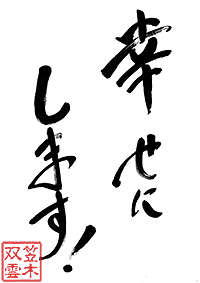 幸せに
します!
笠木
双雲